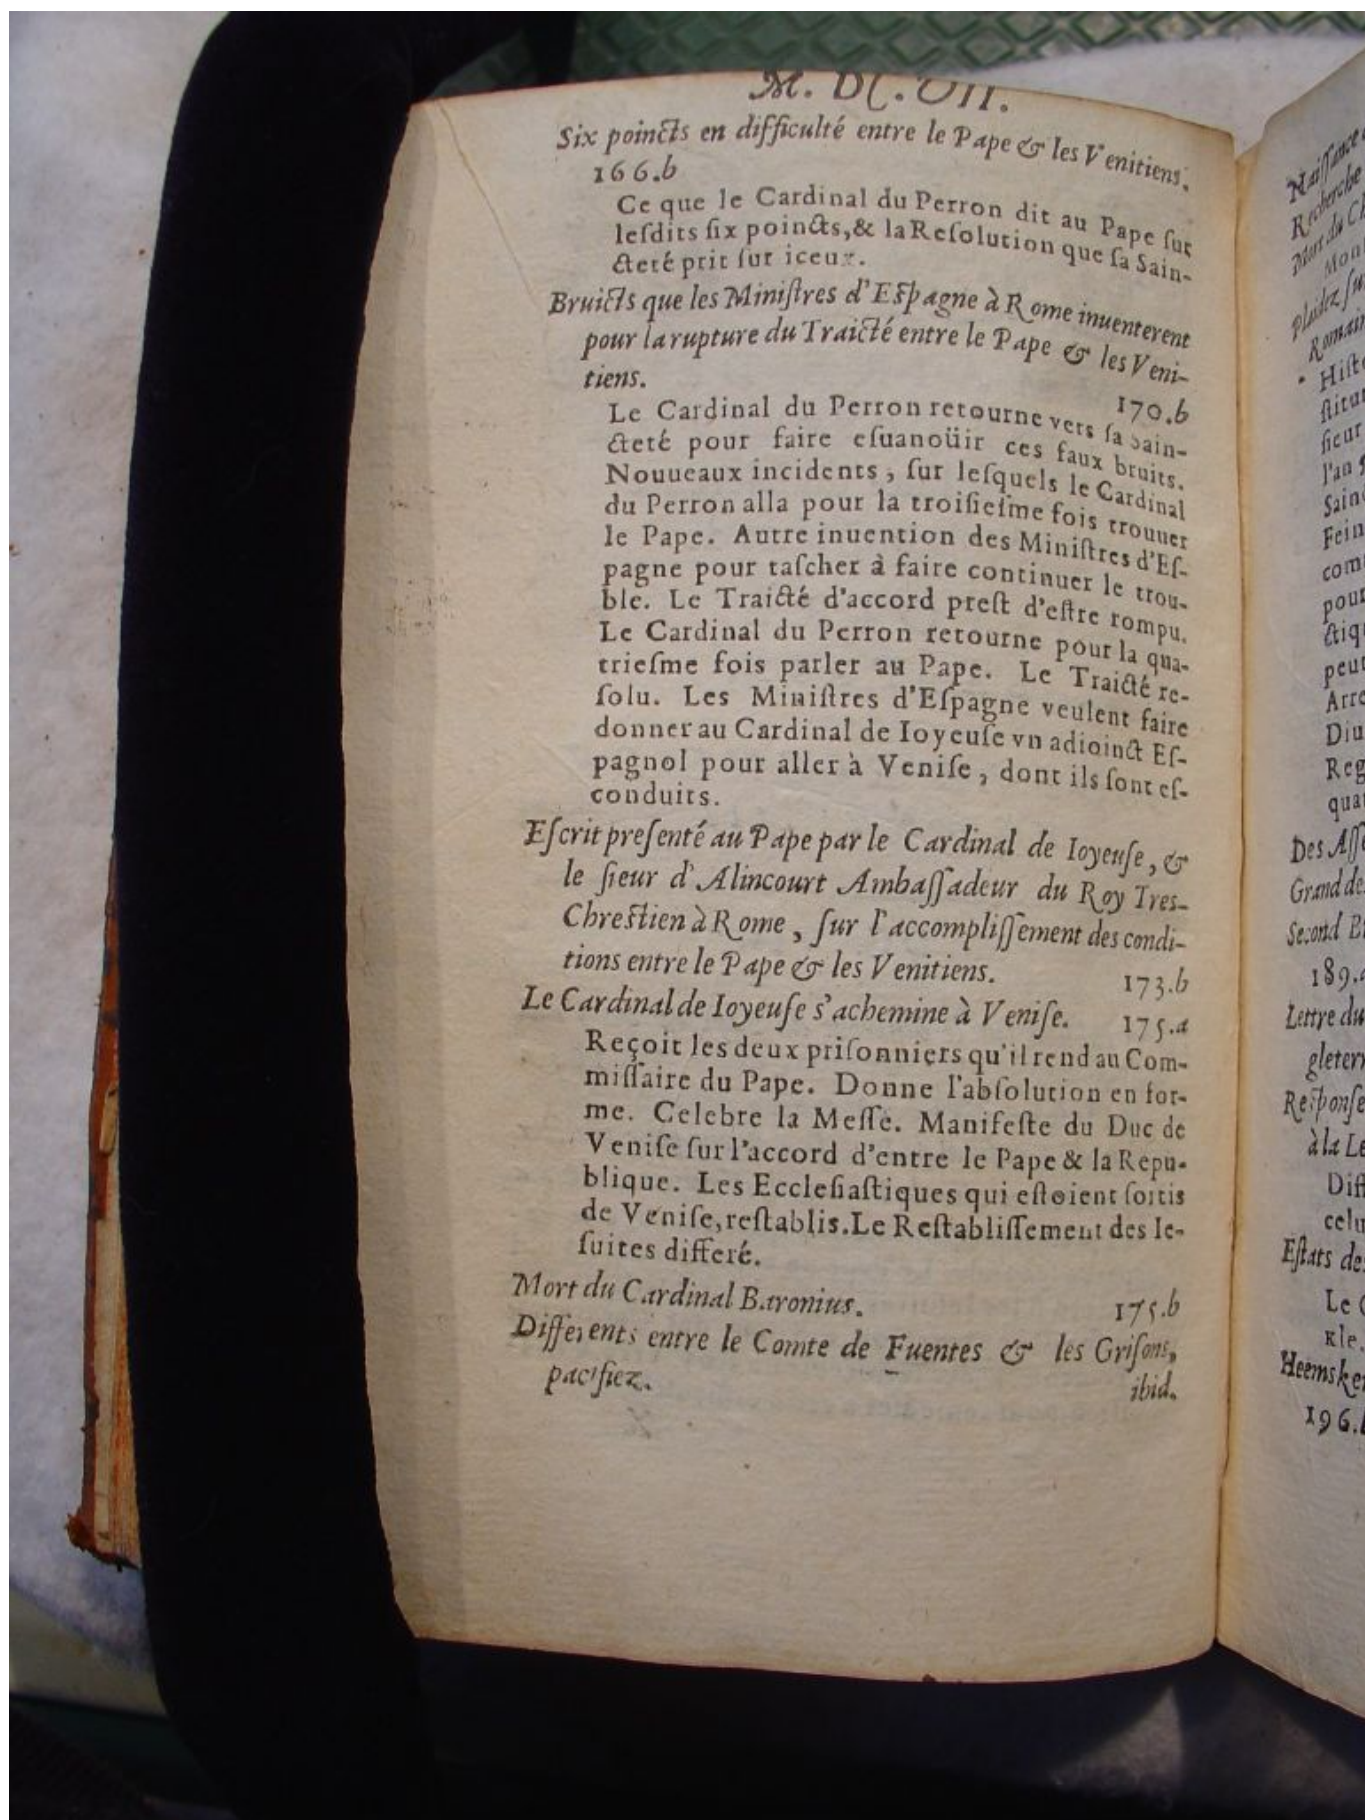 M. DC. VII.
Six poincts en difficulté entre le Pape & les Venitiens.
166.b
Ce que le Cardinal du Perron dit au Pape sur
lesdits six poincts, & la Resolution que sa Sain-
cteté prit sur iceux.
Bruicts que les Ministres d'Espagne à Rome inuenterent
pour la rupture du Traicté entre le Pape & les Veni-
tiens. 170.b
Le Cardinal du Perron retourne vers sa Sain-
cteté pour faire esuanoüir ces faux bruits.
Nouueaux incidents, sur lesquels le Cardinal
du Perron alla pour la troisiesme fois trouuer
le Pape. Autre inuention des Ministres d'Es-
pagne pour tascher à faire continuer le trou-
ble. Le Traicté d'accord prest d'estre rompu.
Le Cardinal du Perron retourne pour la qua-
triesme fois parler au Pape. Le Traicté re-
solu. Les Ministres d'Espagne veulent faire
donner au Cardinal de Ioyeuse vn adioinct Es-
pagnol pour aller à Venise, dont ils sont es-
conduits.
Escrit presenté au Pape par le Cardinal de Ioyeuse, &
le sieur d'Alincourt Ambassadeur du Roy Tres-
Chrestien à Rome, sur l'accomplissement des condi-
tions entre le Pape & les Venitiens. 173.b
Le Cardinal de Ioyeuse s'achemine à Venise. 175.a
Reçoit les deux prisonniers qu'il rend au Com-
missaire du Pape. Donne l'absolution en for-
me. Celebre la Messe. Manifeste du Duc de
Venise sur l'accord d'entre le Pape & la Repu-
blique. Les Ecclesiastiques qui estoient sortis
de Venise, restablis. Le Restablissement des Ie-
suites differé.
Mort du Cardinal Baronius. 175.b
Differents entre le Comte de Fuentes & les Grisons,
pacifiez. ibid.
Naissance
Recherche
Mort du Ch
Mon
Plaidez su
Romain
Histo
stitu
sieur
l'an
Sain
Fein
com
pour
ctiq
peut
Arre
Diu
Reg
qua
Des Asse
Grand de
Second B
189.
Lettre du
gleterr
Response
à la Le
Diff
celu
Estats de
Le C
Kle.
Heemsker
196.